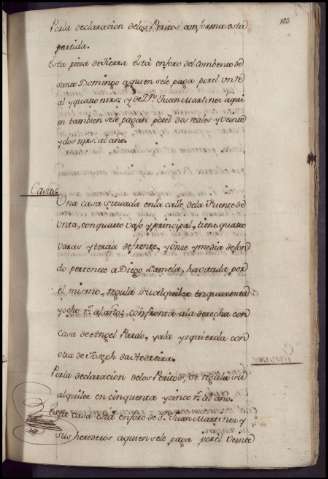 Por la declaracion de los Peritos conforma esta
partida.
Esta pieza de tierra está en foro del combento de
santo Domingo a quien se le paga por el un
al y quatro mrs. y de Dn. Juan Martinez a qui
en tambien se le pagan por el dos reales y veinte
y dos mrs. al año.
Casas
Una casa situada en la calle de la Puente de
con quarto vajo y principal, tiene quatro
varas y tercia de frente, y once y media de fon
do pertenece a Diego Lamela, havitada por
el mismo, regula su alquiler en quarenta
y ocho rs. al año. confronta a la derecha con
casa de Angel Pardo, y a la yzquierda con
otra de Joseph da Ferreira.
Por la declaracion de los Peritos, se regula su
alquiler en cinquenta y cinco rs. al año.
Esta casa está en foro de Dn. Juan Martinez y
sus herederos a quien se le paga por el veinte